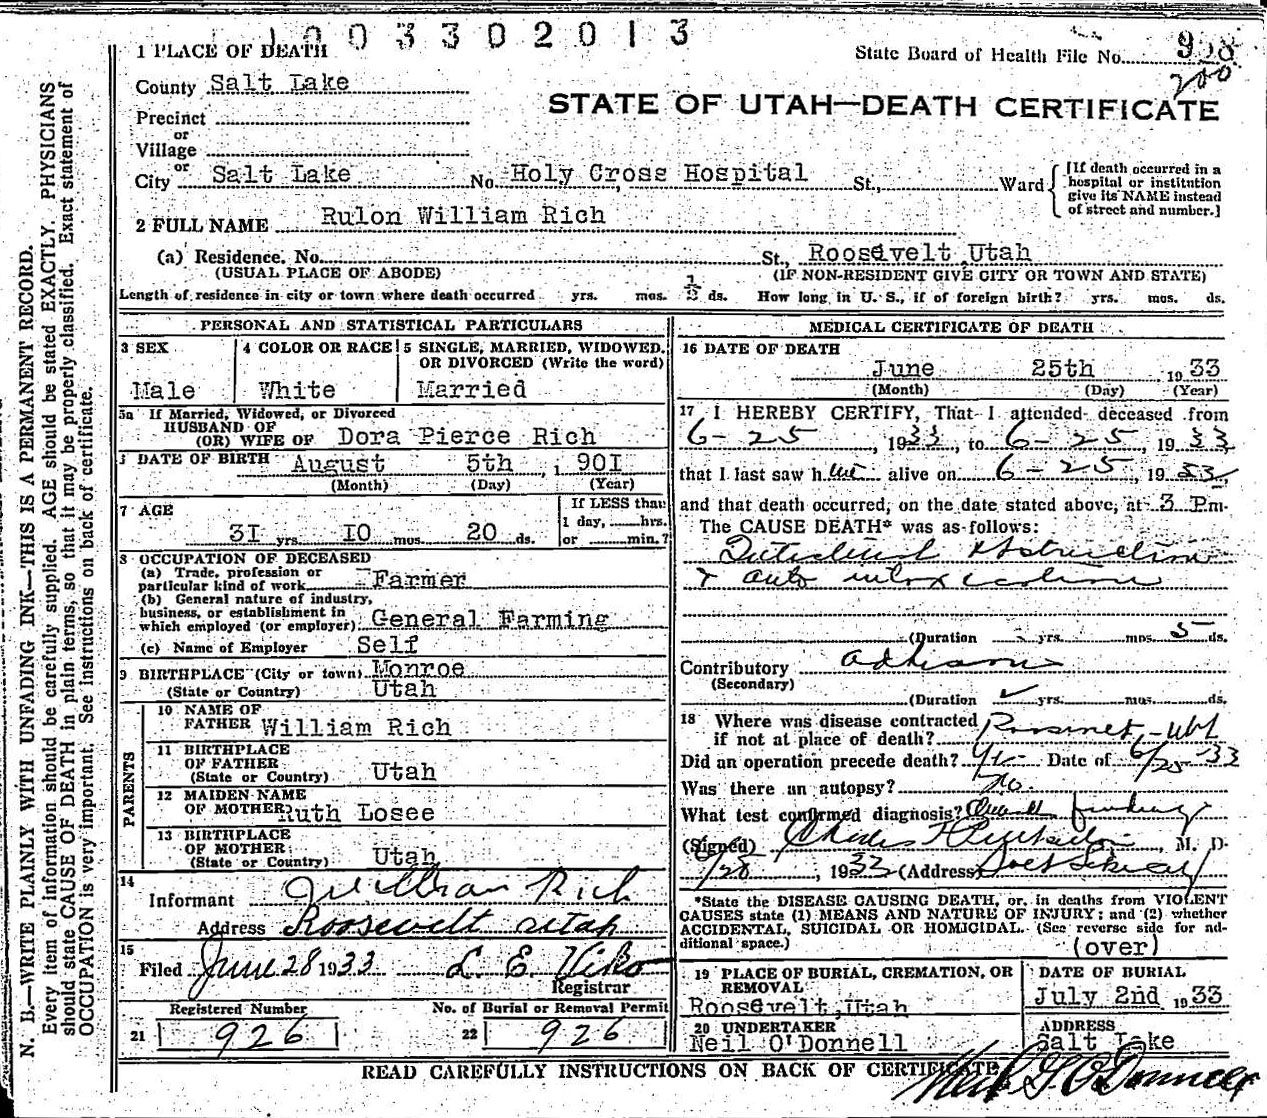 1003302013
1 PLACE OF DEATH
State Board of Health File No. 958
200
County Salt Lake
STATE OF UTAH—DEATH CERTIFICATE
Precinct
or
Village
or
City Salt Lake No. Holy Cross Hospital St., Ward
[If death occurred in a hospital or institution give its NAME instead of street and number.]
2 FULL NAME Rulon William Rich
(a) Residence. No. St., Roosevelt, Utah
(USUAL PLACE OF ABODE) (IF NON-RESIDENT GIVE CITY OR TOWN AND STATE)
Length of residence in city or town where death occurred yrs. mos. 1/2 ds. How long in U. S., if of foreign birth? yrs. mos. ds.
PERSONAL AND STATISTICAL PARTICULARS
3 SEX 4 COLOR OR RACE 5 SINGLE, MARRIED, WIDOWED, OR DIVORCED (Write the word)
Male White Married
5a If Married, Widowed, or Divorced
HUSBAND OF
(OR) WIFE OF Dora Pierce Rich
DATE OF BIRTH August 5th, 1901
(Month) (Day) (Year)
7 AGE If LESS than
31 yrs. 10 mos. 20 ds. 1 day, hrs.
or min.?
8 OCCUPATION OF DECEASED
(a) Trade, profession or
particular kind of work Farmer
(b) General nature of industry,
business, or establishment in
which employed (or employer) General Farming
(c) Name of Employer Self
9 BIRTHPLACE (City or town) Monroe
(State or Country) Utah
PARENTS
10 NAME OF
FATHER William Rich
11 BIRTHPLACE
OF FATHER
(State or Country) Utah
12 MAIDEN NAME
OF MOTHER Ruth Losee
13 BIRTHPLACE
OF MOTHER
(State or Country) Utah
14
Informant William Rich
Address Roosevelt Utah
15
Filed June 28 1933 L. E. Viko
Registrar
Registered Number No. of Burial or Removal Permit
21 926 22 926
MEDICAL CERTIFICATE OF DEATH
16 DATE OF DEATH
June 25th 1933
(Month) (Day) (Year)
17 I HEREBY CERTIFY, That I attended deceased from
6-25, 1933, to 6-25 1933,
that I last saw him alive on 6-25, 1933,
and that death occurred, on the date stated above, at 3 P.m.
The CAUSE DEATH* was as follows:
Intestinal obstruction
& auto intoxication
(Duration yrs. mos. 5 ds.
Contributory adhesions
(Secondary)
(Duration yrs. mos. ds.
18 Where was disease contracted
if not at place of death? Roosevelt, Utah
Did an operation precede death? Yes Date of 6/25-33
Was there an autopsy? No.
What test confirmed diagnosis?
(Signed) Charles M. D.
6/28, 1933 (Address) Salt Lake City
*State the DISEASE CAUSING DEATH, or, in deaths from VIOLENT
CAUSES state (1) MEANS AND NATURE OF INJURY; and (2) whether
ACCIDENTAL, SUICIDAL OR HOMICIDAL. (See reverse side for additional space.)
(over)
19 PLACE OF BURIAL, CREMATION, OR
REMOVAL
Roosevelt, Utah
DATE OF BURIAL
July 2nd 1933
20 UNDERTAKER
Neil O'Donnell
ADDRESS
Salt Lake
READ CAREFULLY INSTRUCTIONS ON BACK OF CERTIFICATE
Neil G. O'Donnell
N. B.—WRITE PLAINLY WITH UNFADING INK—THIS IS A PERMANENT RECORD.
Every item of information should be carefully supplied. AGE should be stated EXACTLY. PHYSICIANS
should state CAUSE OF DEATH in plain terms, so that it may be properly classified. Exact statement of
OCCUPATION is very important. See instructions on back of certificate.